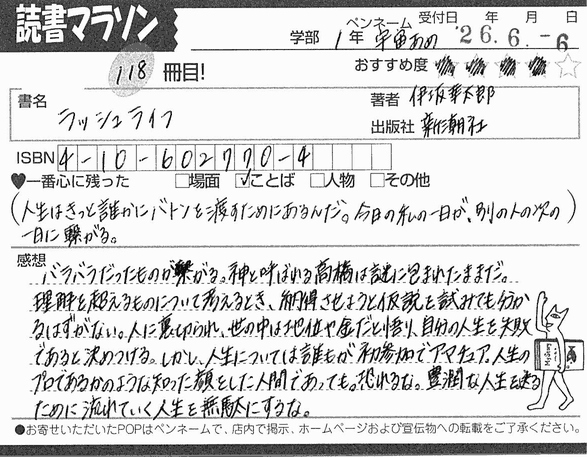 読書マラソン
学部 1年 ペンネーム 宇宙あめ 受付日 年 月 日 '26.6.-6
118 冊目!
おすすめ度 ★★★★☆
書名 ラッシュライフ
著者 伊坂幸太郎
出版社 新潮社
ISBN 4-10-602770-4
♥一番心に残った □場面 ☑ことば □人物 □その他
(人生はきっと誰かにバトンを渡すためにあるんだ。今日の私の一日が、別の人の次の
一日に繋がる。)
感想
バラバラだったものが繋がる。神と呼ばれる高橋は謎に包まれたままだ。
理解を超えるものについて考えるとき、納得させようと仮説を試みても分か
るはずがない。人に裏切られ、世の中は地位や金だと悟り、自分の人生を失敗
であると決めつける。しかし、人生については誰もが初参加でアマチュア、人生の
プロであるかのような知った顔をした人間であっても。恐れるな。豊潤な人生を送る
ために流れていく人生を無駄にするな。
●お寄せいただいたPOPはペンネームで、店内で掲示、ホームページおよび宣伝物への転載をご了承ください。